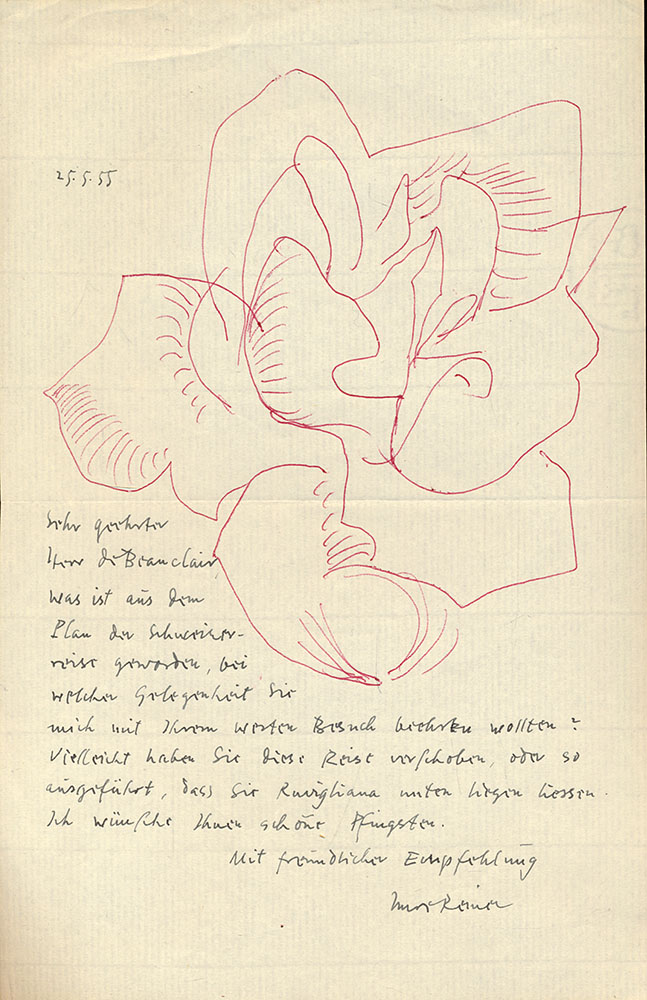 25.5.55
Sehr geehrter
Herr de Beauclair,
was ist aus dem
Plan der Schweizer-
reise geworden, bei
welcher Gelegenheit Sie
mich mit Ihrem werten Besuch beehren wollten?
Vielleicht haben Sie diese Reise verschoben, oder so
ausgeführt, dass Sie Ruvigliana unten liegen liessen.
Ich wünsche Ihnen schöne Pfingsten.
Mit freundlicher Empfehlung
Imre Reiner